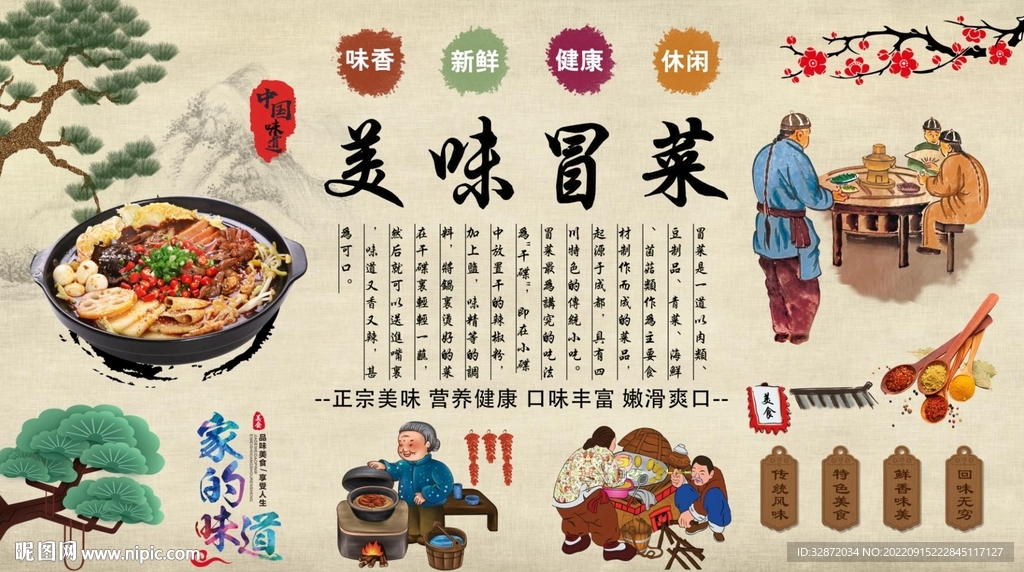 味香
新鲜
健康
休闲
中国味道
美味冒菜
冒菜是一道以肉類、
豆制品、青菜、海鮮
、菌菇類作為主要食
材制作而成的菜品,
起源于成都,具有四
川特色的傳統小吃。
冒菜最為講究的吃法
為"干碟",即在小碟
中放置干的辣椒粉,
加上鹽,味精等的調
料,將鍋裏燙好的菜
在干碟裏輕輕一蘸,
然后就可以送進嘴裏
,味道又香又辣,甚
為可口。
--正宗美味 营养健康 口味丰富 嫩滑爽口--
美食
家的味道
美食
品味美食/享受人生
传统风味
特色美食
鲜香味美
回味无穷
昵图网 www.nipic.com
ID:32872034 NO:20220915222845117127